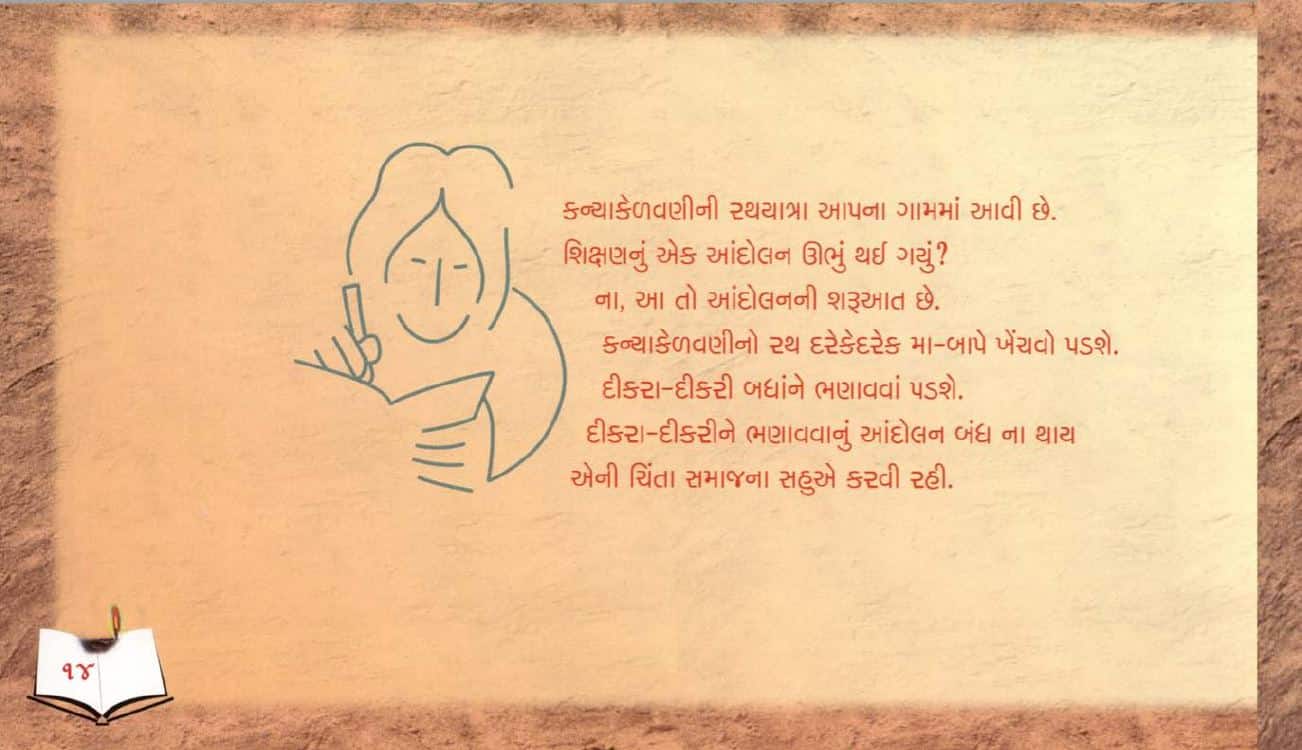 કન્યાકેળવણીની રથયાત્રા આપના ગામમાં આવી છે.
શિક્ષણનું એક આંદોલન ઊભું થઈ ગયું?
ના, આ તો આંદોલનની શરૂઆત છે.
કન્યાકેળવણીનો રથ દરેકેદરેક મા-બાપે ખેંચવો પડશે.
દીકરા-દીકરી બધાંને ભણાવવાં પડશે.
દીકરા-દીકરીને ભણાવવાનું આંદોલન બંધ ના થાય
એની ચિંતા સમાજના સહુએ કરવી રહી.
૧૪